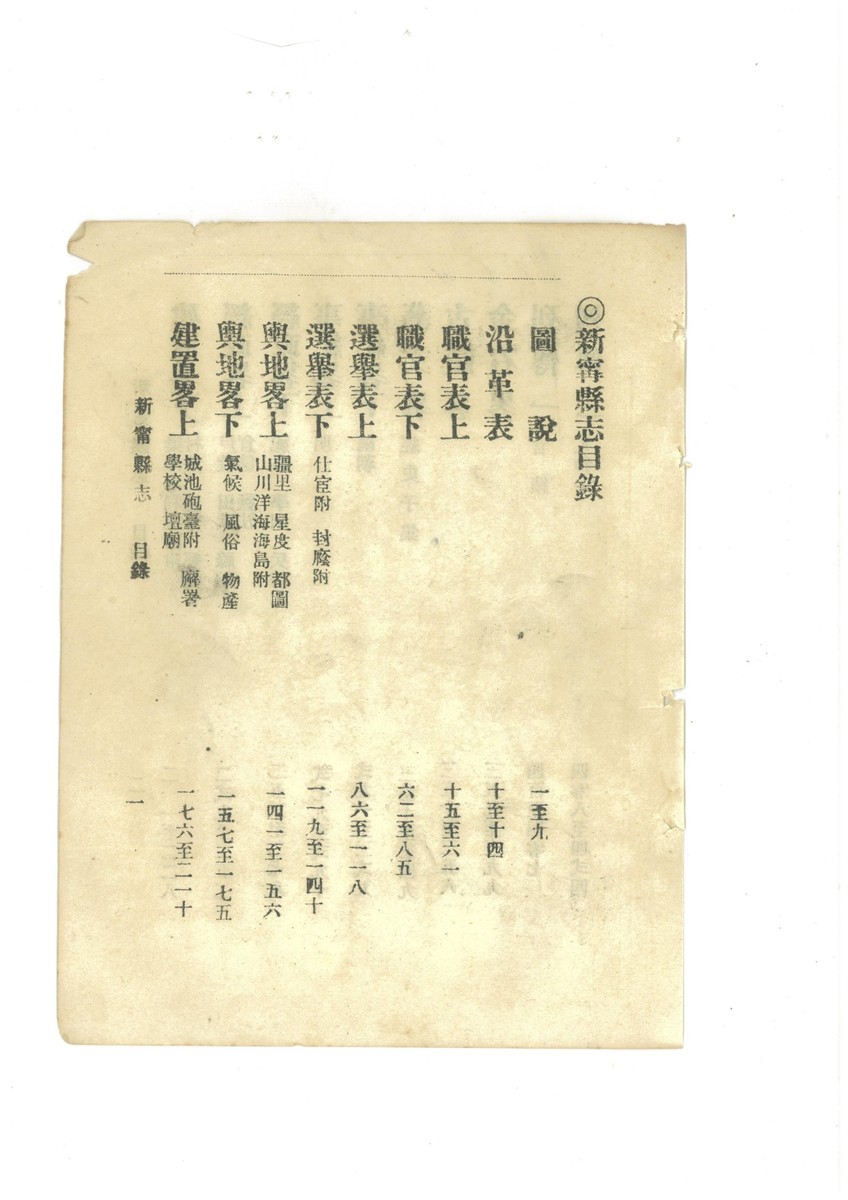 ◎新甯縣志目錄
圖說 一至九
沿革表 十至十四
職官表上 十五至六一
職官表下 六二至八五
選舉表上 八六至一一八
選舉表下 仕宦附 封廕附 一一九至一四十
輿地畧上 疆里 星度 都圖 山川洋海海島附 一四一至一五六
輿地畧下 氣候 風俗 物產 一五七至一七五
建置畧上 城池砲臺附 廨署 學校 壇廟 一七六至二一十
新甯縣志 目錄 一